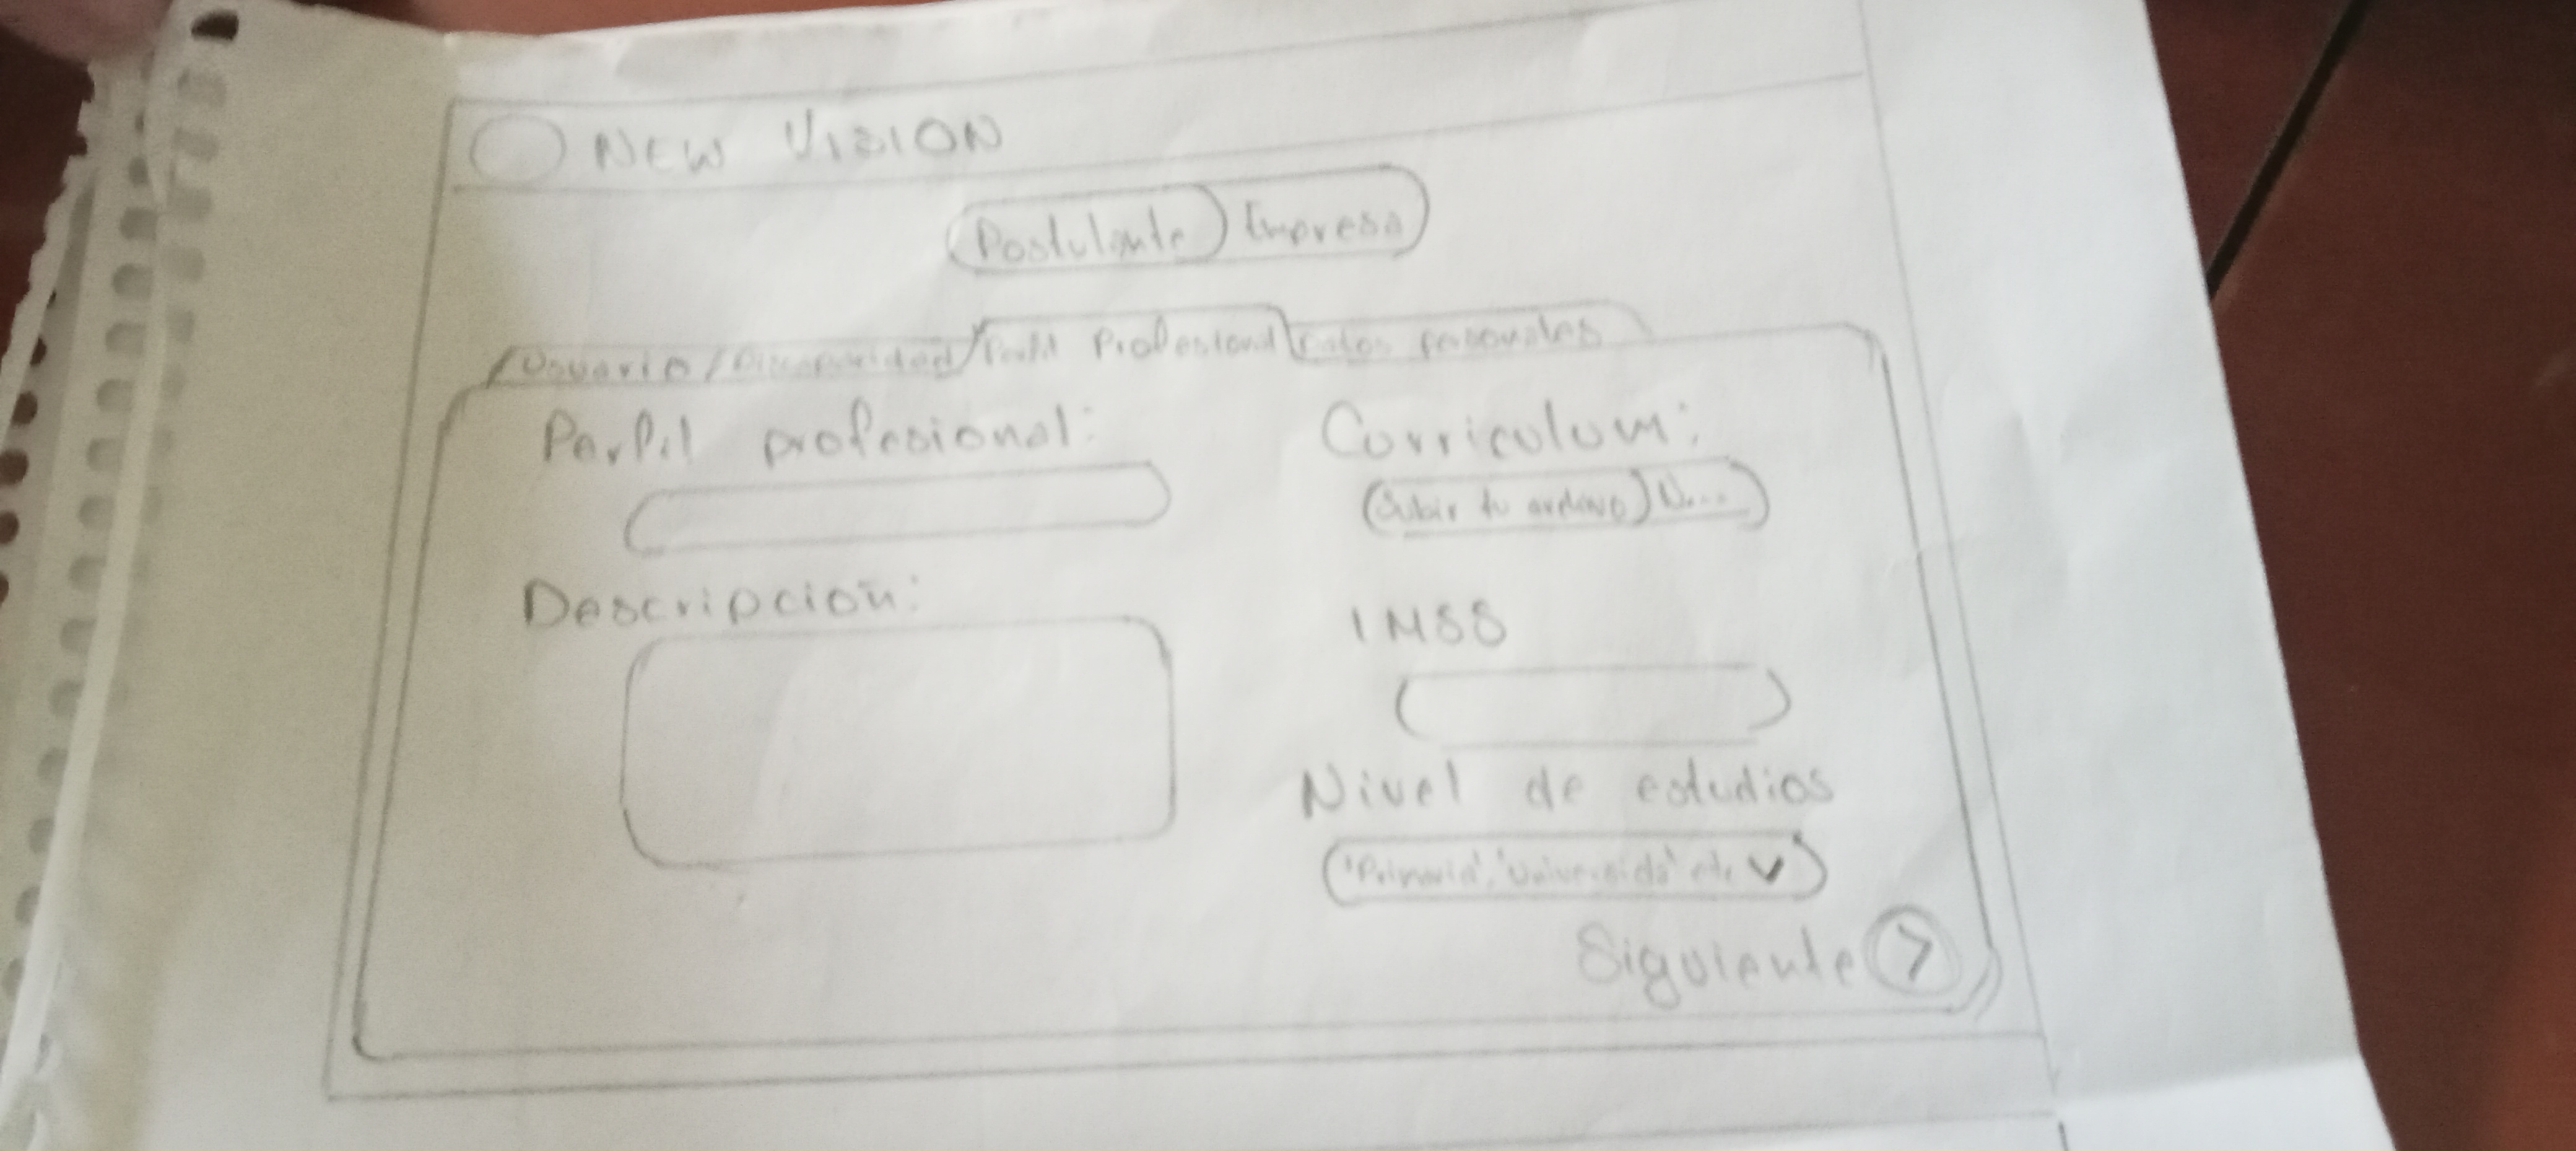 NEW VISION
Postulante Empresa
Usuario Discapacidad Perfil Profesional Datos personales
Perfil profesional: Curriculum:
Subir tu archivo N...
Descripción: IMSS
Nivel de estudios
'Primaria', 'Universida' etc
Siguiente >